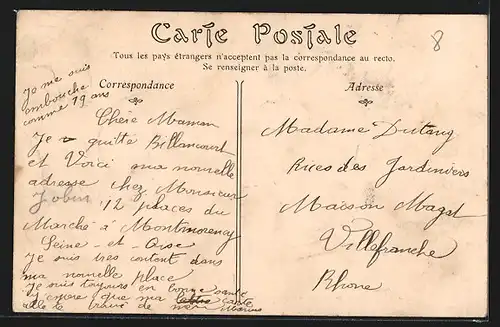 Carte Postale
8
Tous les pays étrangers n'acceptent pas la correspondance au recto.
Se renseigner à la poste.
Correspondance
Je me suis
embouche
comme 19 ans
Chère Maman
Je quitte Billancourt
et Voici ma nouvelle
adresse chez Monsieur
Jobin
12 places du
Marché à Montmorency
Seine-et-Oise
Je suis tres contant dans
ma nouvelle place
Je suis toujours en bonne santé
J'espere que ma carte
de meme
Marius
Adresse
Madame Dutang
Rues des Jardiniers
Maison Magat
Villefranche
Rhone